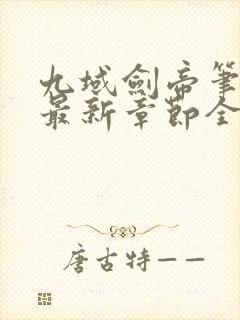 九域劍帝筆
最新章節全
唐古特——